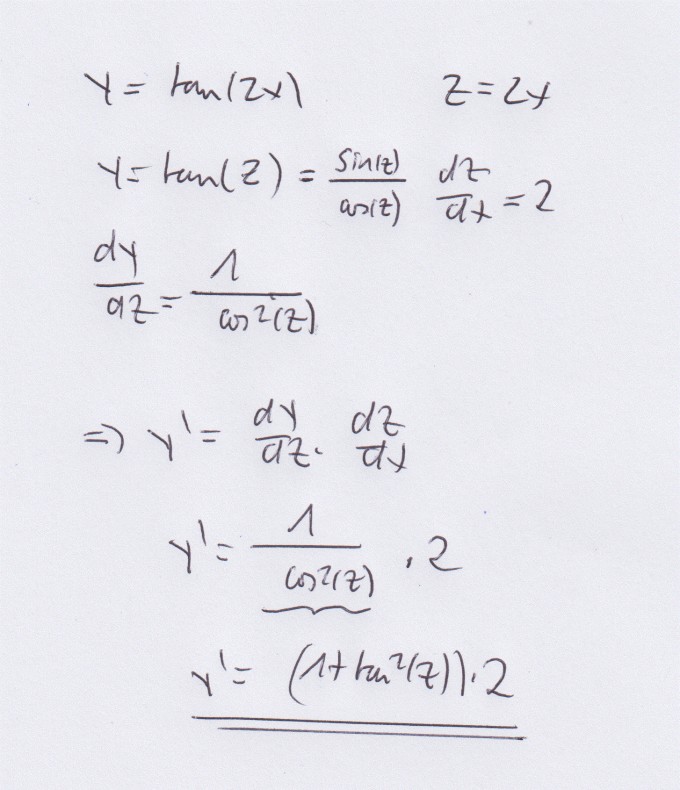 y = tan(2x) z = 2x
y = tan(z) = sin(z)/cos(z) dz/dx = 2
dy/dz = 1/cos²(z)
⇒ y' = dy/dz · dz/dx
y' = 1/cos²(z) · 2
y' = (1 + tan²(z)) · 2